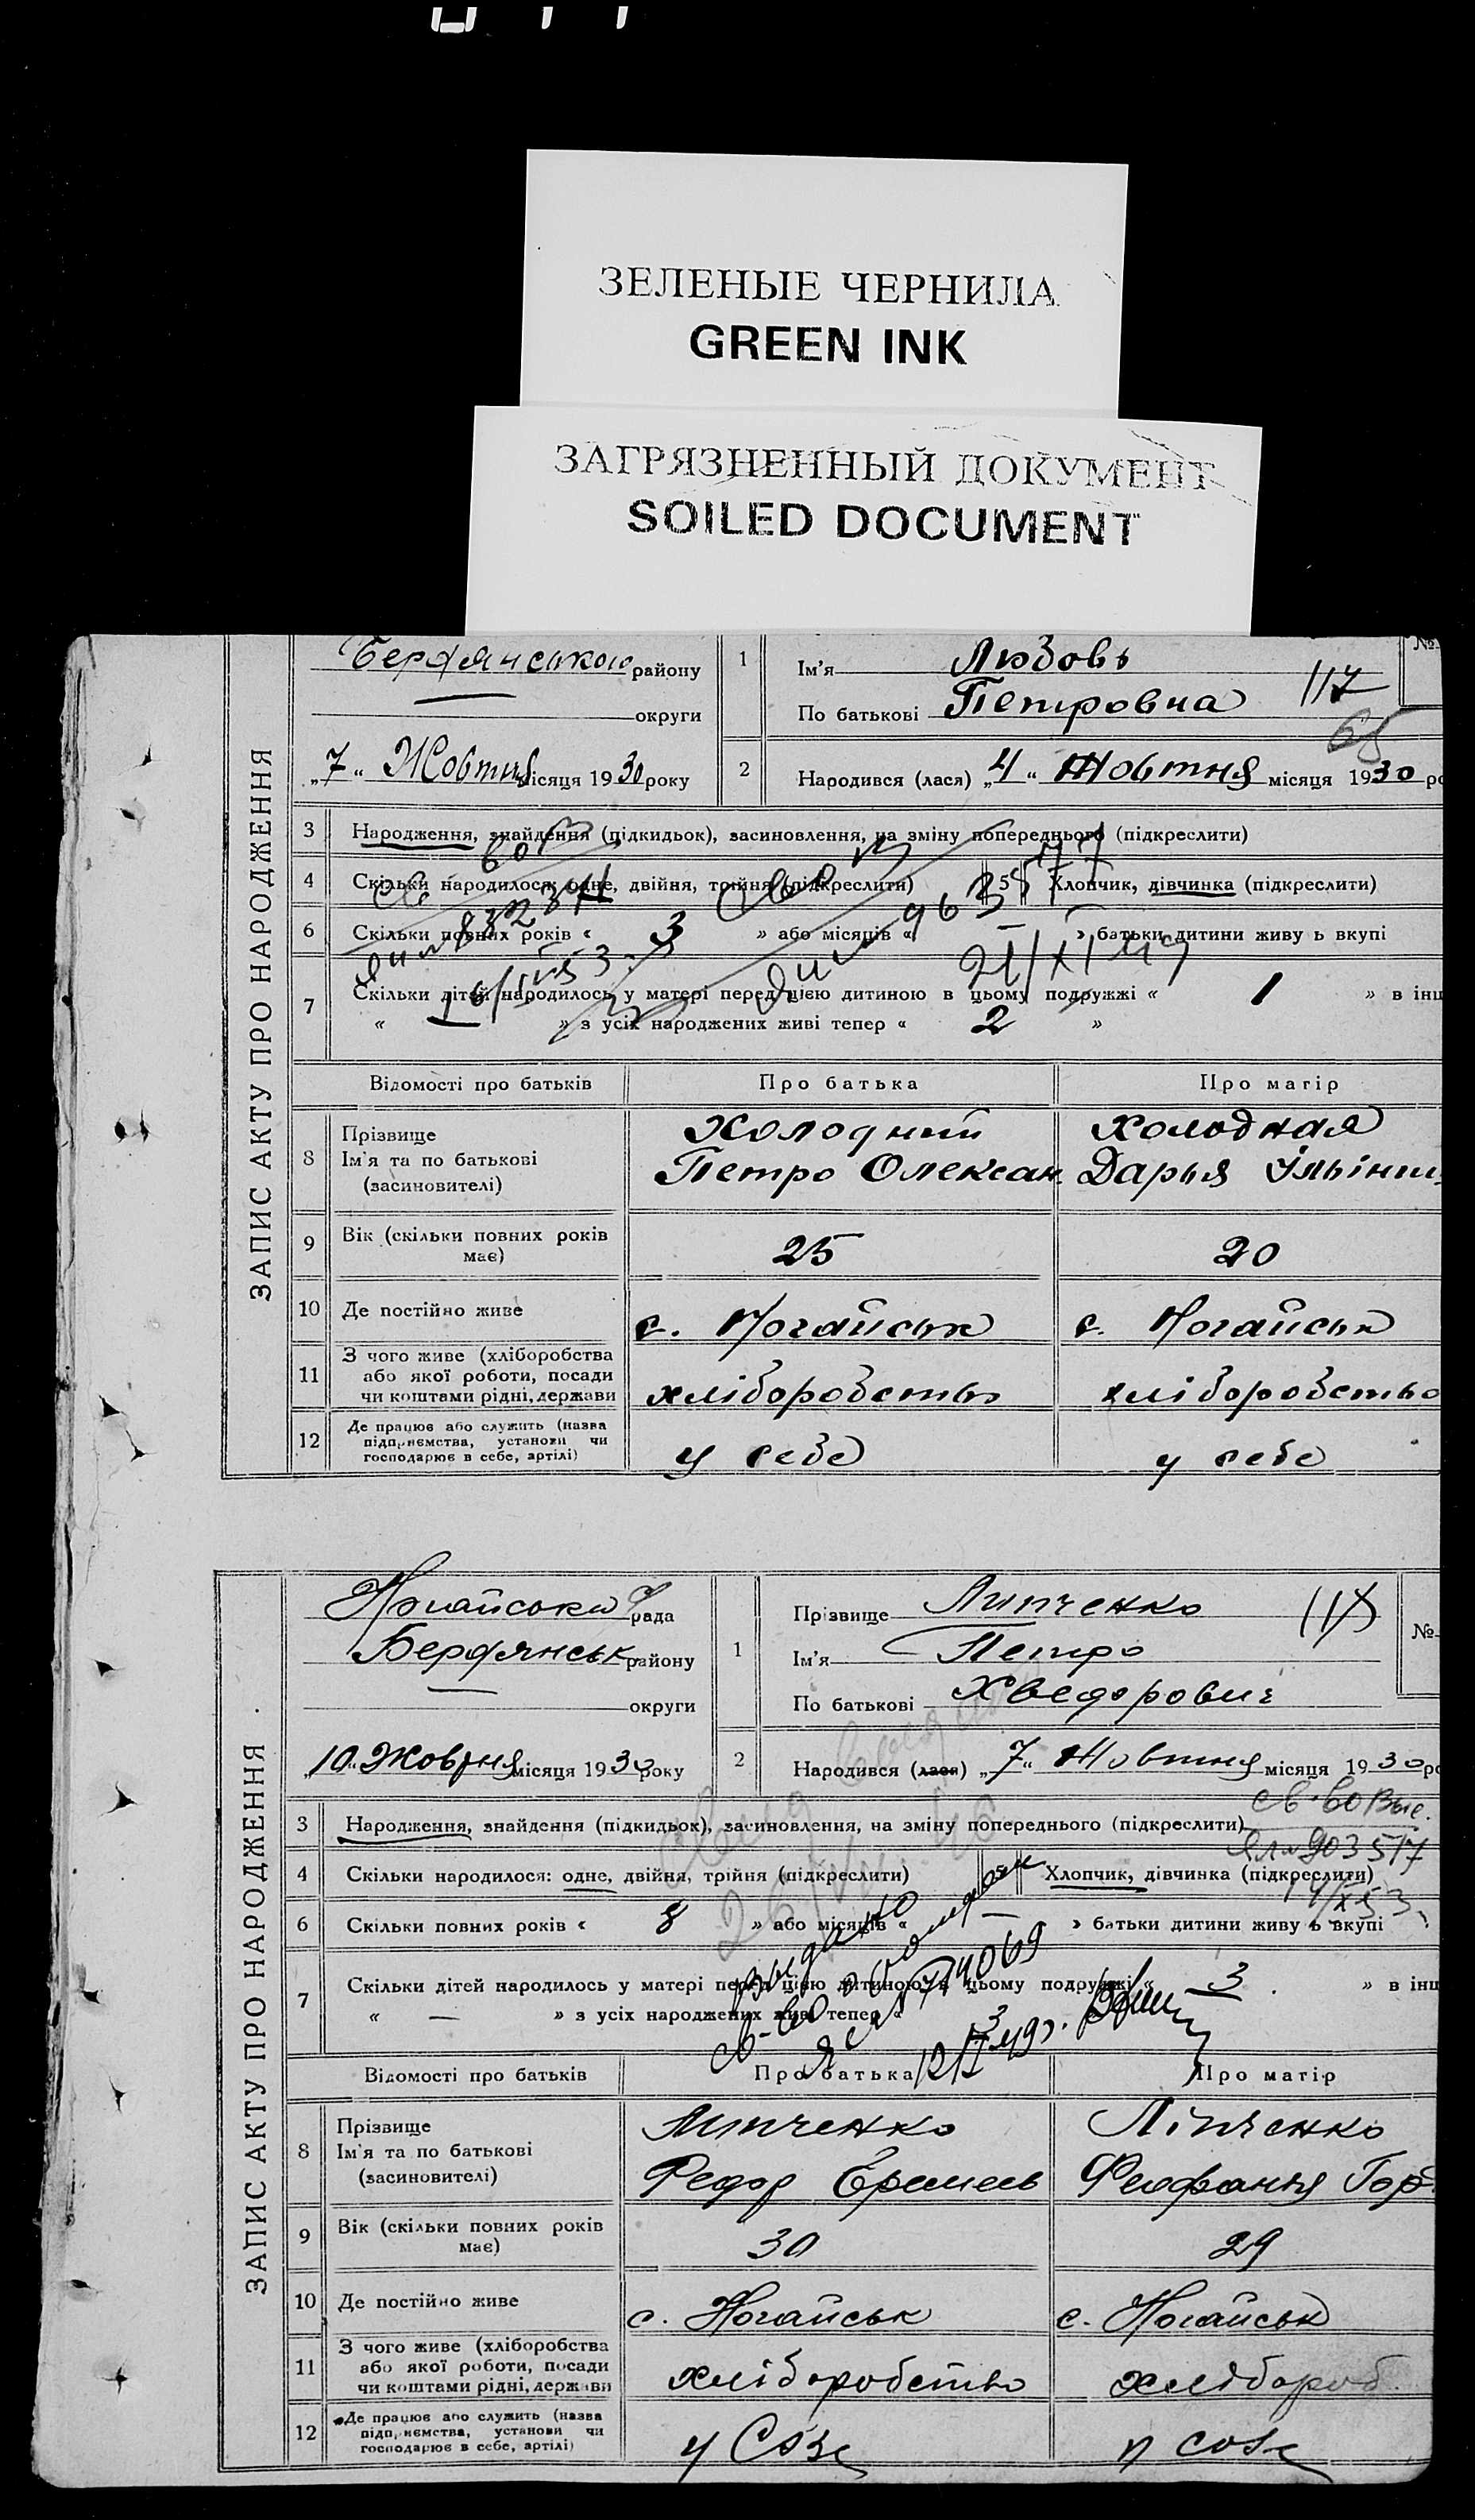 ЗЕЛЕНЫЕ ЧЕРНИЛА
GREEN INK
ЗАГРЯЗНЕННЫЙ ДОКУМЕНТ
SOILED DOCUMENT
ЗАПИС АКТУ ПРО НАРОДЖЕННЯ
Бердянського району
округи
„7“ Жовтня місяця 1930 року
1
Ім'я Любовь
По батькові Петровна
117
№
2
Народився (лася) „4“ Жовтня місяця 1930 ро
3 Народження, знайдення (підкидьок), засиновлення, на зміну попереднього (підкреслити)
4 Скільки народилося: одне, двійня, трійня (підкреслити) 5 Хлопчик, дівчинка (підкреслити)
6 Скільки повних років « 3 » або місяців « — » батьки дитини живу ь вкупі
7 Скільки дітей народилось у матері перед цією дитиною в цьому подружжі « 1 » в інш
« — » з усіх народжених живі тепер « 2 »
Відомості про батьків Про батька Про матір
8 Прізвище Холодний Холодная
Ім'я та по батькові Петро Олексан. Дарья Ільінич.
(засиновителі)
9 Вік (скільки повних років має) 25 20
10 Де постійно живе с. Ногайськ с. Ногайськ
11 З чого живе (хліборобства або якої роботи, посади чи коштами рідні, держави хліборобство хліборобство
12 Де працює або служить (назва підприємства, установи чи господарює в себе, артілі) у себе у себе
ЗАПИС АКТУ ПРО НАРОДЖЕННЯ
Ногайська рада
Бердянськ. району
округи
„10“ Жовтня місяця 1930 року
1
Прізвище Липченко
Ім'я Петро
По батькові Хведорович
118
№
2
Народився (лася) „7“ Жовтня місяця 1930 ро
св-во выс.
3 Народження, знайдення (підкидьок), засиновлення, на зміну попереднього (підкреслити)
903517
4 Скільки народилося: одне, двійня, трійня (підкреслити) 5 Хлопчик, дівчинка (підкреслити)
6 Скільки повних років « 8 » або місяців « — » батьки дитини живу ь вкупі
7 Скільки дітей народилось у матері перед цією дитиною в цьому подружжі « 3 » в інш
« — » з усіх народжених живі тепер « 3
выдано
св-во о
Відомості про батьків Про батька Про матір
8 Прізвище Липченко Ліпченко
Ім'я та по батькові Федор Еремеев Феофанія Гор
(засиновителі)
9 Вік (скільки повних років має) 30 29
10 Де постійно живе с. Ногайськ с. Ногайськ
11 З чого живе (хліборобства або якої роботи, посади чи коштами рідні, держави хліборобство хлібороб.
12 Де працює або служить (назва підприємства, установи чи господарює в себе, артілі)